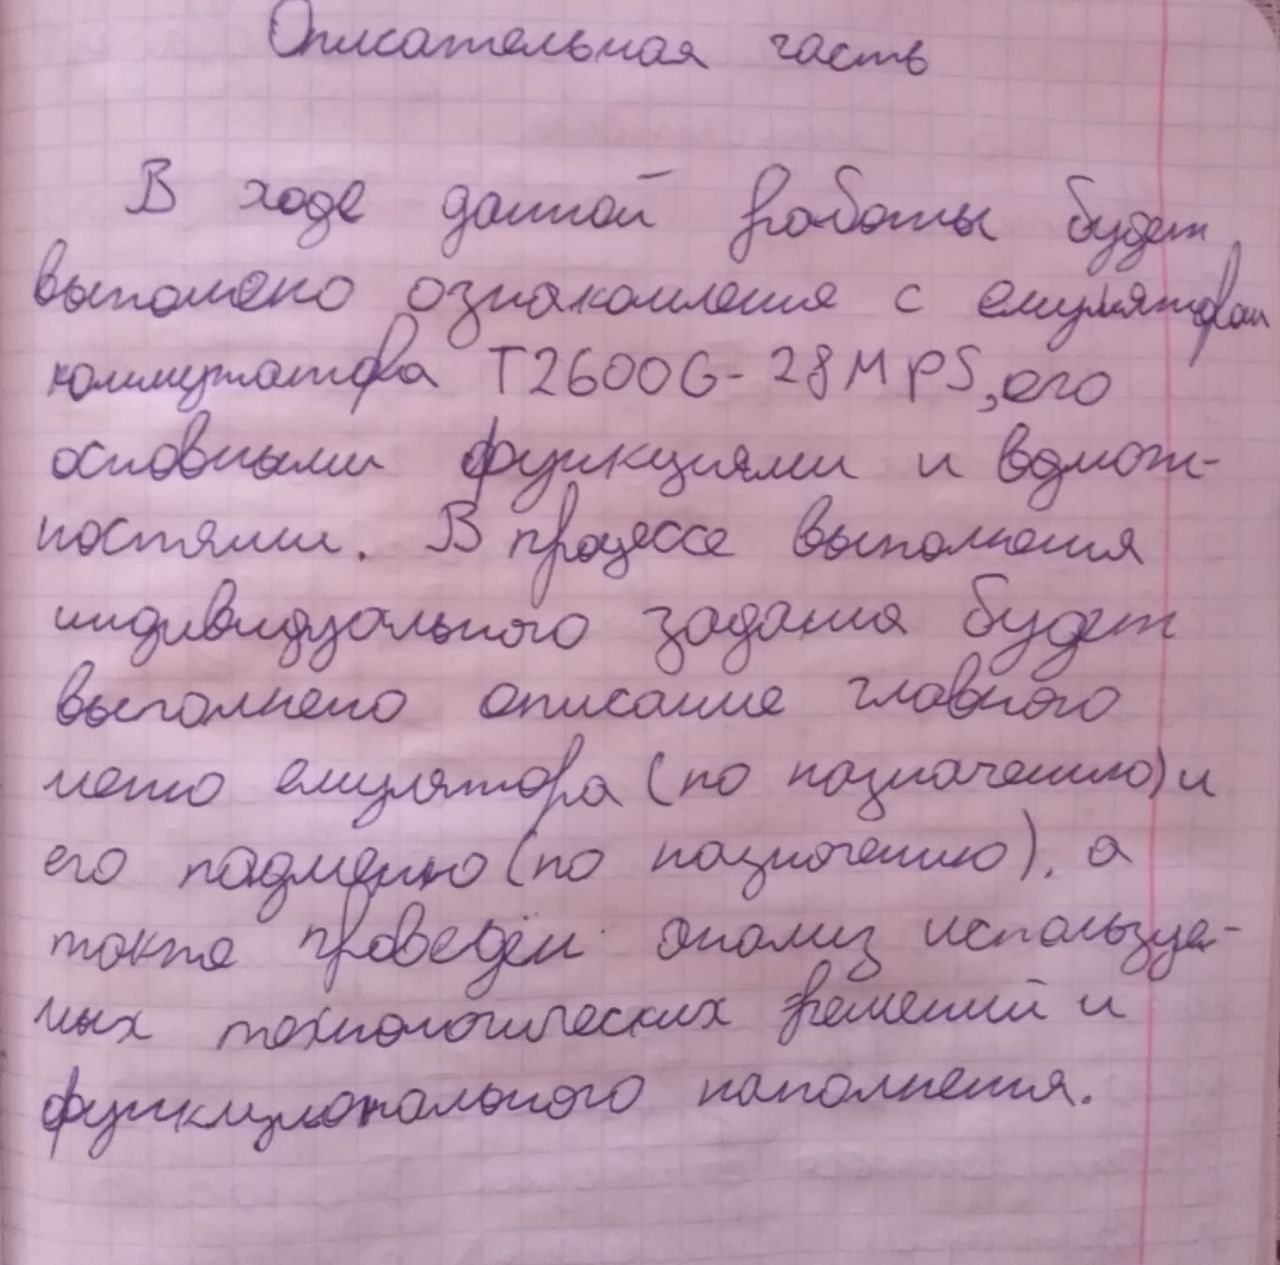 Описательная часть
В ходе данной работы будет
выполнено ознакомление с емулятором
коммутатора T2600G-28MPS, его
основными функциями и возмож-
ностями. В процессе выполнения
индивидуального задания будет
выполнено описание главного
меню емулятора (по назначению) и
его подменю (по назначению), а
также проведён анализ используе-
мых технологических решений и
функционального наполнения.